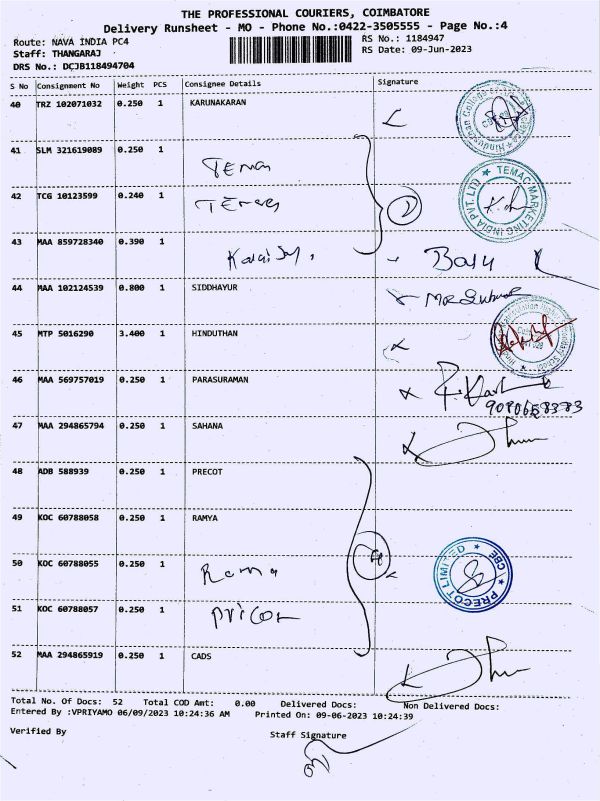 THE PROFESSIONAL COURIERS, COIMBATORE
Delivery Runsheet - MO - Phone No.:0422-3505555 - Page No.:4
Route: NAVA INDIA PC4
RS No.: 1184947
Staff: THANGARAJ
RS Date: 09-Jun-2023
DRS No.: DCJB118494704
S No Consignment No Weight PCS Consignee Details Signature
40 TRZ 102071032 0.250 1 KARUNAKARAN
41 SLM 321619089 0.250 1
TEMAC MARKETING INDIA PVT. LTD
42 TCG 10123599 0.240 1
43 MAA 859728340 0.390 1
Balu
44 MAA 102124539 0.800 1 SIDDHAYUR
45 MTP 5016290 3.400 1 HINDUTHAN
46 MAA 569757019 0.250 1 PARASURAMAN
47 MAA 294865794 0.250 1 SAHANA
48 ADB 588939 0.250 1 PRECOT
49 KOC 60788058 0.250 1 RAMYA
50 KOC 60788055 0.250 1
PRECOT LIMITED CBE
51 KOC 60788057 0.250 1
52 MAA 294865919 0.250 1 CADS
Total No. Of Docs: 52 Total COD Amt: 0.00 Delivered Docs: Non Delivered Docs:
Entered By :VPRIYAMO 06/09/2023 10:24:36 AM Printed On: 09-06-2023 10:24:39
Verified By
Staff Signature